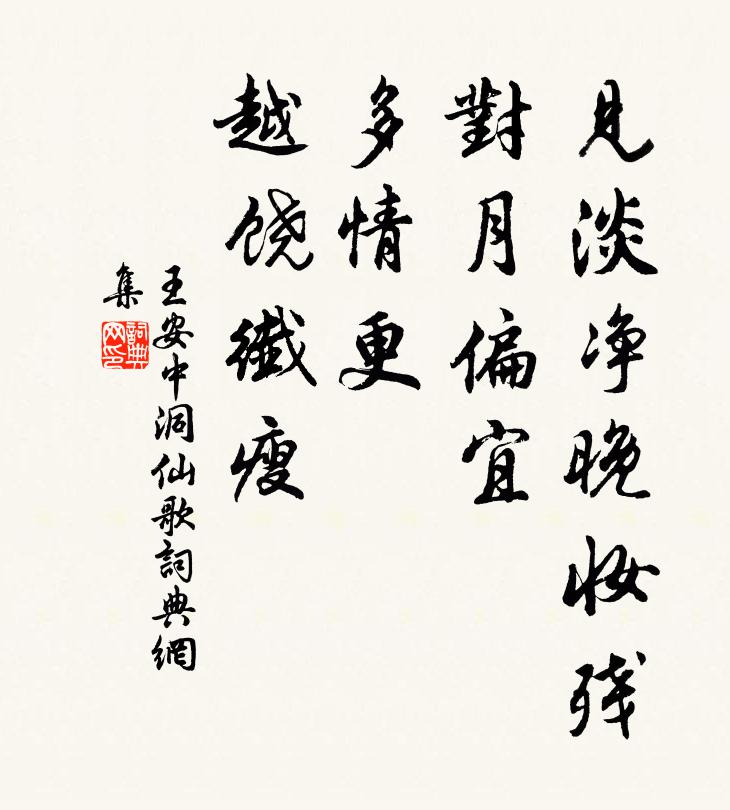 見淡净晚妆残
對月偏宜
多情更
越饶纖瘦
王安中洞仙歌詞典網
集
詞典網印